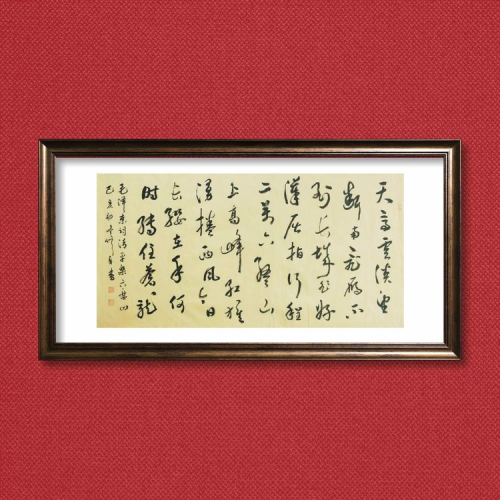 天高雲淡望
断南飛雁不
到长城非好
漢屈指行程
二萬六盤山
上高峰红旗
漫捲西风今日
长缨在手何
时缚住蒼龍
毛泽东词清平樂六盘山
己亥初